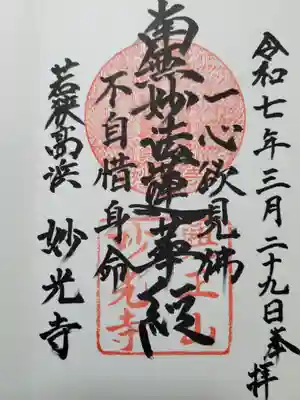 令和七年三月二十九日奉拝
一心欲見佛
南無妙法蓮華経
不自惜身命
若狭高浜 妙光寺
妙光寺